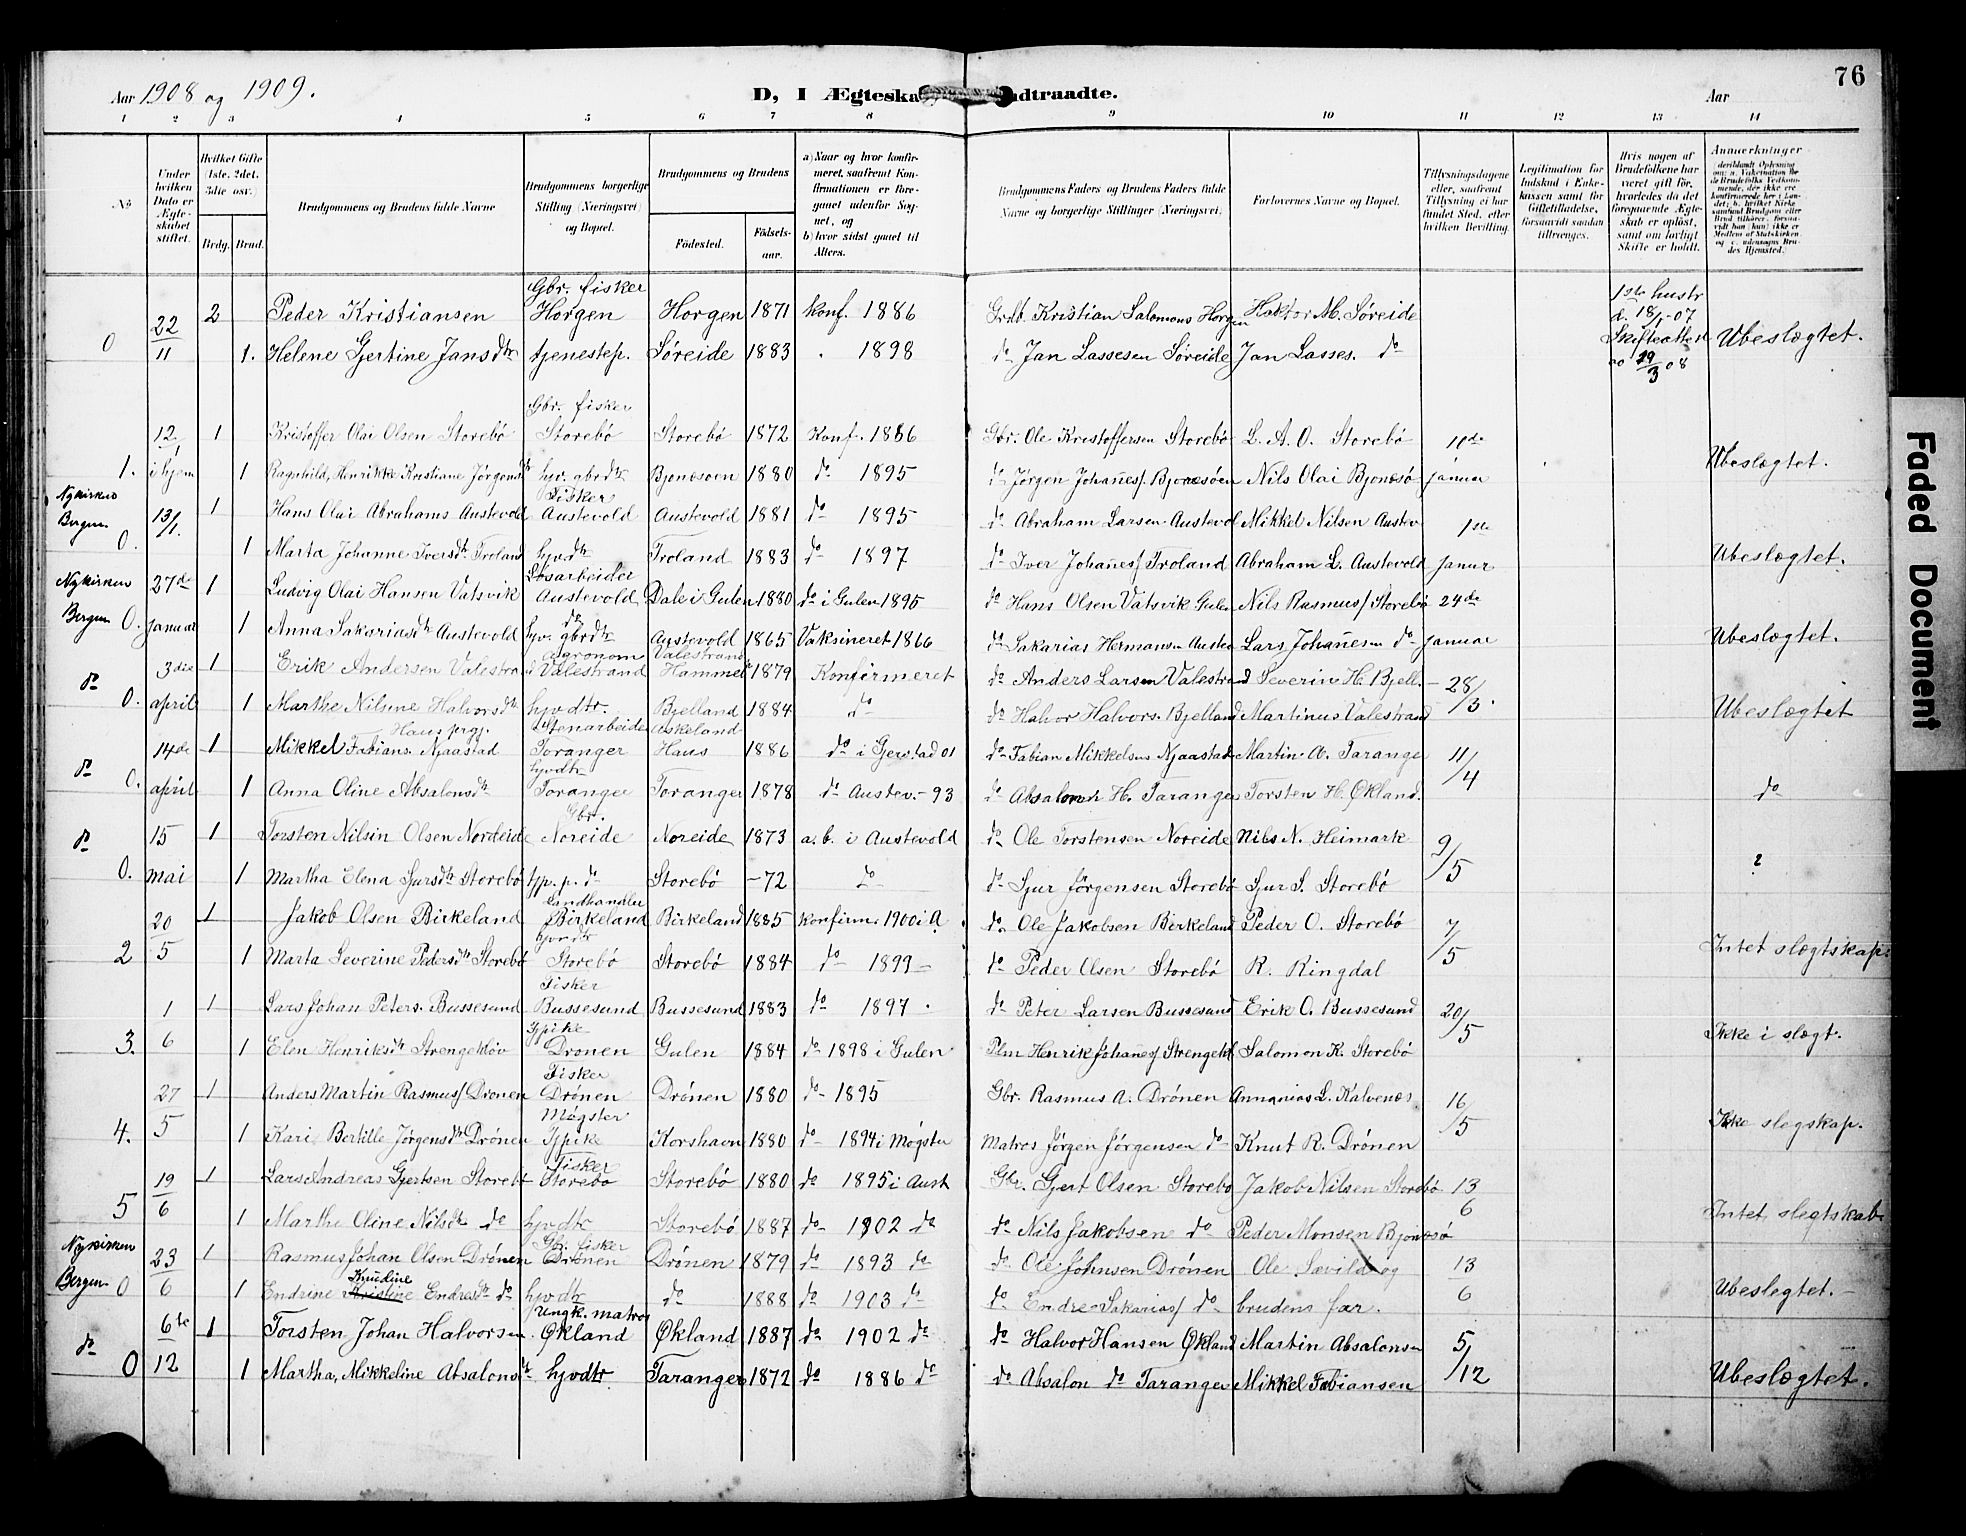 76
Aar 1908 og 1909. D, I Ægteska dtraadte. Aar
1 2 3 4 5 6 7 8 9 10 11 12 13 14
No.
Under hvilken Dato er Ægteskabet stiftet.
Hvilket Gifte (1ste. 2det. 3die osv.)
Brdg. Brud.
Brudgommens og Brudens fulde Navne
Brudgommens borgerlige Stilling (Næringsvei) og Bopæl.
Brudgommens og Brudens
Födested. Födselsaar.
a) Naar og hvor konfirmeret, saafremt Konfirmationen er foregaaet udenfor Sognet, og
b) hvor sidst gaaet til Alters.
Brudgommens Faders og Brudens Faders fulde Navne og borgerlige Stillinger (Næringsvei)
Forlovernes Navne og Bopæl.
Tillysningsdagene eller, saafremt Tillysning ei har fundet Sted, efter hvilken Bevilling.
Legitimation for Indskud i Enkekassen samt for Giftetilladelse, forsaavidt saadan tiltrænges.
Hvis nogen af Brudefolkene har været gift før, hvorledes da det foregaaende Ægteskab er oplöst, samt om lovligt Skifte er holdt.
Anmærkninger
Gbr. fisker
22 2 Peder Kristiansen Horgen Horgen 1871 konf. 1886 Grdb. Kristian Salomons Horgen Haktor M. Søreide 1ste hustr d. 18/1-07
0 11 1. Helene Gjertine Jansdtr tjenestep. Søreide 1883 . 1898 do Jan Lassesen Søreide Jan Lasses. do Skifteattest 29/3 08 Ubeslægtet.
Gbr. fisker
12 1 Kristoffer Olai Olsen Storebö Storebö Storebö 1872 Konf. 1886 Gbr. Ole Kristoffersen Storebö L. A. O. Storebö 11de
1. i hjem 1 Ragnhild, Henrikke Kristiane Jørgensdtr hjv. gbrdtr Bjonesøen 1880 do 1895 do Jørgen Johanes/ Bjonesøen Nils Olai Bjonesö januar Ubeslægtet.
Nykirken Bergen Fisker
13/1. 1 Hans Olai Abrahams Austevold Austevold Austevold 1881 do 1895 do Abraham Larsen Austevol Mikkel Nilsen Austev 1ste
0. 1 Marta Johanne Iversdtr Troland hjvdtr Troland 1883 do 1897 do Iver Johanes/ Troland Abraham L. Austevold janur Ubeslægtet.
Nykirken Løsarbeider
27de 1 Ludvig Olai Hansen Vatsvik Austevold Dale i Gulen 1880 do i Gulen 1895 do Hans Olsen Vatsvik Gulen Nils Rasmus/ Storebø 24de
Bergen 0. januar 1 Anna Sakariasdtr Austevold hjv. gbrdtr Austevold 1865 Vaksineret 1866 do Sakarias Hermansen Auste Lars Johanesen do januar Ubeslægtet.
agronom Valestrand
do 3die 1 Erik Andersen Valestra d Valestrand Hammer 1879 Konfirmeret do Anders Larsen Valestrand Severin H. Bjell. 28/3.
0. april 1 Marthe Nilsine Halvorsdtr hjvdtr. Bjelland 1884 do do Halvor Halvors. Bjelland Martinus Valestrand Ubeslægtet
Haus prgj. Stenarbeide Askeland
do 14de 1 Mikkel Fabians. Njaastad Toranger Haus 1886 do i Gjerstad 01 do Fabian Mikkelsen Njaastad Martin A. Tarange 11/4
hjvdtr
0. april 1 Anna Oline Absalonsdtr Toranger Toranger 1878 do Austev. - 93 do Absalon H. Taranger Torsten H. Økland. do
Gbr.
do 15 1 Torsten Nilsin Olsen Nordeide Noreide Noreide 1873 a. b. i Austevold do Ole Torstensen Noreide Nils N. Heimark 9/5
0. mai 1 Martha Elena Sjursdtr Storebö tjp. p. do Storebö -72 do do Sjur Jørgensen Storebö Sjur S. Storebö ?
Landhandler
20 1 Jakob Olsen Birkeland Birkeland Birkeland 1885 konfirm. 1900 i A. do Ole Jakobsen Birkeland Peder O. Storebö 7/5
hjvdtr
2 5 1 Marta Severine Pedersdtr Storebö Storebö Storebö 1884 do 1899 do Peder Olsen Storebö R. Ringdal Intet slægtskap.
Fisker
1 1 Lars Johan Peters. Bussesund Bussesund Bussesund 1883 do 1897. do Peter Larsen Bussesund Erik O. Bussesund 20/5
Tjpike
3. 6 1 Elen Henriksdtr Strengeløv Dronen Gulen 1884 do 1898 i Gulen Plm Henrik Johanes/ Strengel Salomon K. Storebö Ikke i slægt.
Fisker
27 1 Anders Martin Rasmus/ Dronen Drönen Drönen 1880 do 1895 Gbr. Rasmus A. Drönen Annanias L. Kalvenes 16/5
Møgster
4. 5 1 Kari Bertille Jörgensdtr Drönen Tjpike Korshavn 1880 do 1894 i Møgster Matros Jörgen Jörgensen do Knut R. Drönen Ikke slegskap.
Fisker
19 1 Lars Andreas Gjertsen Storeb Storebö Storebö 1880 do 1895 i Aust Gbr. Gjert Olsen Storebö Jakob Nilsen Storebö 13
5 6 1 Marthe Oline Nilsdtr do hjvdtr Storebö 1887 do 1902 do do Nils Jakobsen do Peder Monsen Bjonesö 6 Intet slegtskab
Nykirken Gbr. fisker
23 1 Rasmus Johan Olsen Drönen Drönen Drönen 1879 do 1893 do do Ole Johnsen Drönen Ole Sævild og 13
Knudine
Bergen 0 6 1 Endrine Kristine Endresdtr do hjvdtr do 1888 do 1903 do do Endre Sakarias/ do brudens far. 6 Ubeslegtet.
Ungk. matros
do 6te 1 Torsten Johan Halvorsen Økland Økland 1887 do 1902 do do Halvor Hansen Økland Martin Absalonsen 5/12
0 12 1 Martha, Mikkeline Absalonsdtr hjvdtr Taranger 1872 do 1886 do do Absalon do Taranger Mikkel Fabiansen Ubeslægtet.
Faded Document